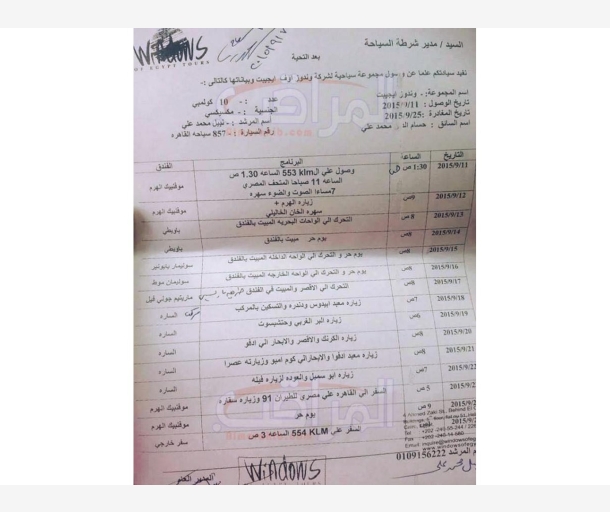 WINDOWS
OF EGYPT TOURS
السيد / مدير شرطة السياحة
بعد التحية
نفيد سيادتكم علما عن وصول مجموعة سياحية لشركة وندوز اوف ايجيبت وبياناتها كالتالى :-
اسم المجموعة: - وندوز ايجيبت
عدد : - 10 كولمبي
تاريخ الوصول : 2015/9/11
الجنسية : - مكسيكسي
تاريخ المغادرة : 2015/9/25
أسم المرشد : - نبيل محمد علي
اسم السائق : حسام محمد علي
رقم السيارة : - 857 سياحه القاهره
المراقب
التاريخ الساعة البرنامج الفندق
2015/9/11 1:30 ص وصول علي ال klm 553 الساعه 1.30 ص
الساعه 11 صباحا المتحف المصري
7مساءا الصوت والضوء سهره
موفنبيك الهرم
2015/9/12 9ص زياره الهرم +
سهره الخان الخاليلي
موفنبيك الهرم
2015/9/13 8ص التحرك الي الواحات البحريه المبيت بالفندق باويطي
2015/9/14 8ص يوم حر مبيت بالفندق باويطي
2015/9/15 8ص يوم حر و التحرك الي الواحه الداخله المبيت بالفندق
2015/9/16 8ص يوم حر و التحرك الي الواحه الخارجه المبيت بالفندق
2015/9/17 8ص التحرك الي الاقصر والمبيت في الفندق ماريتيم جولي فيل
2015/9/18 7ص زياره معبد ابيدوس ودندره والتسكين بالمركب الساره
2015/9/19 6ص زياره البر الغربي وحتشبسوت الساره
2015/9/20 8ص زياره الكرنك والاقصر والابحار الي ادفو الساره
2015/9/21 8ص زياره معبد ادفوا والابحارالي كوم امبو وزيارته عصرا الساره
2015/9/22 7ص زياره ابو سمبل والعوده لزياره فيله الساره
5 ص السفر الي القاهره علي مصرى للطيران 91 وزياره سقاره موفنبيك الهرم
9 ص يوم حر موفنبيك الهرم
السفر علي KLM 554 الساعه 3 ص سفر خارجي
المراقب
م المرشد 0109156222
المدير العام
WINDOWS